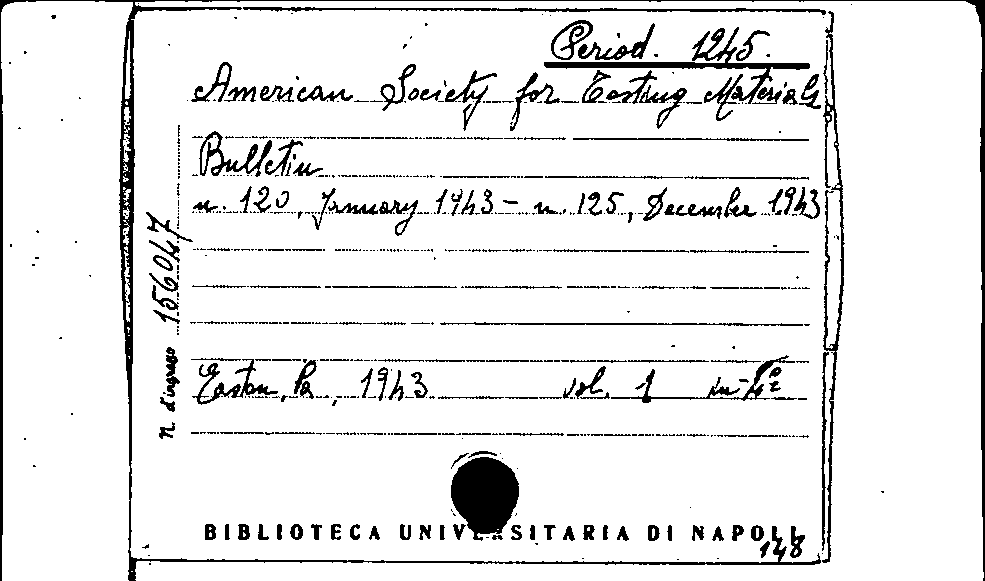 Period. 1245.
American Society for Testing Materials
Bulletin
n. 120, January 1943 - n. 125, December 1943
N. d'ingresso 156047
Easton, Pa, 1943 vol. 1 in-4º
BIBLIOTECA UNIVERSITARIA DI NAPOLI
148